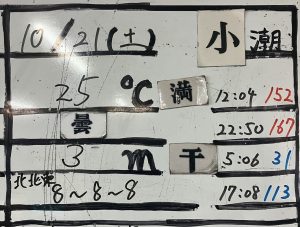 10/21(土) 小潮
25 ℃ 満 12:04 152
曇 22:50 167
3 m 干 5:06 31
北北東 8~8~8 17:08 113